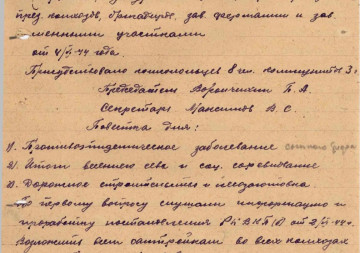 пред колхозов, бригадиров, зав. фермами и зав.
участками
от 4/VI-44 года.
Присутствовало 8 чел. 3.
Председатель П. А.
Секретарь Максимов В. С.
Повестка дня:
1). заболевание
2). Итоги весеннего сева и соц. соревнование
3). Дорожное строительство и лесозаготовка.
По первому вопросу слушали информацию и
проработку постановления РК ВКП(б) от 2/VI-44г.
Возложить всем во всех колхозах